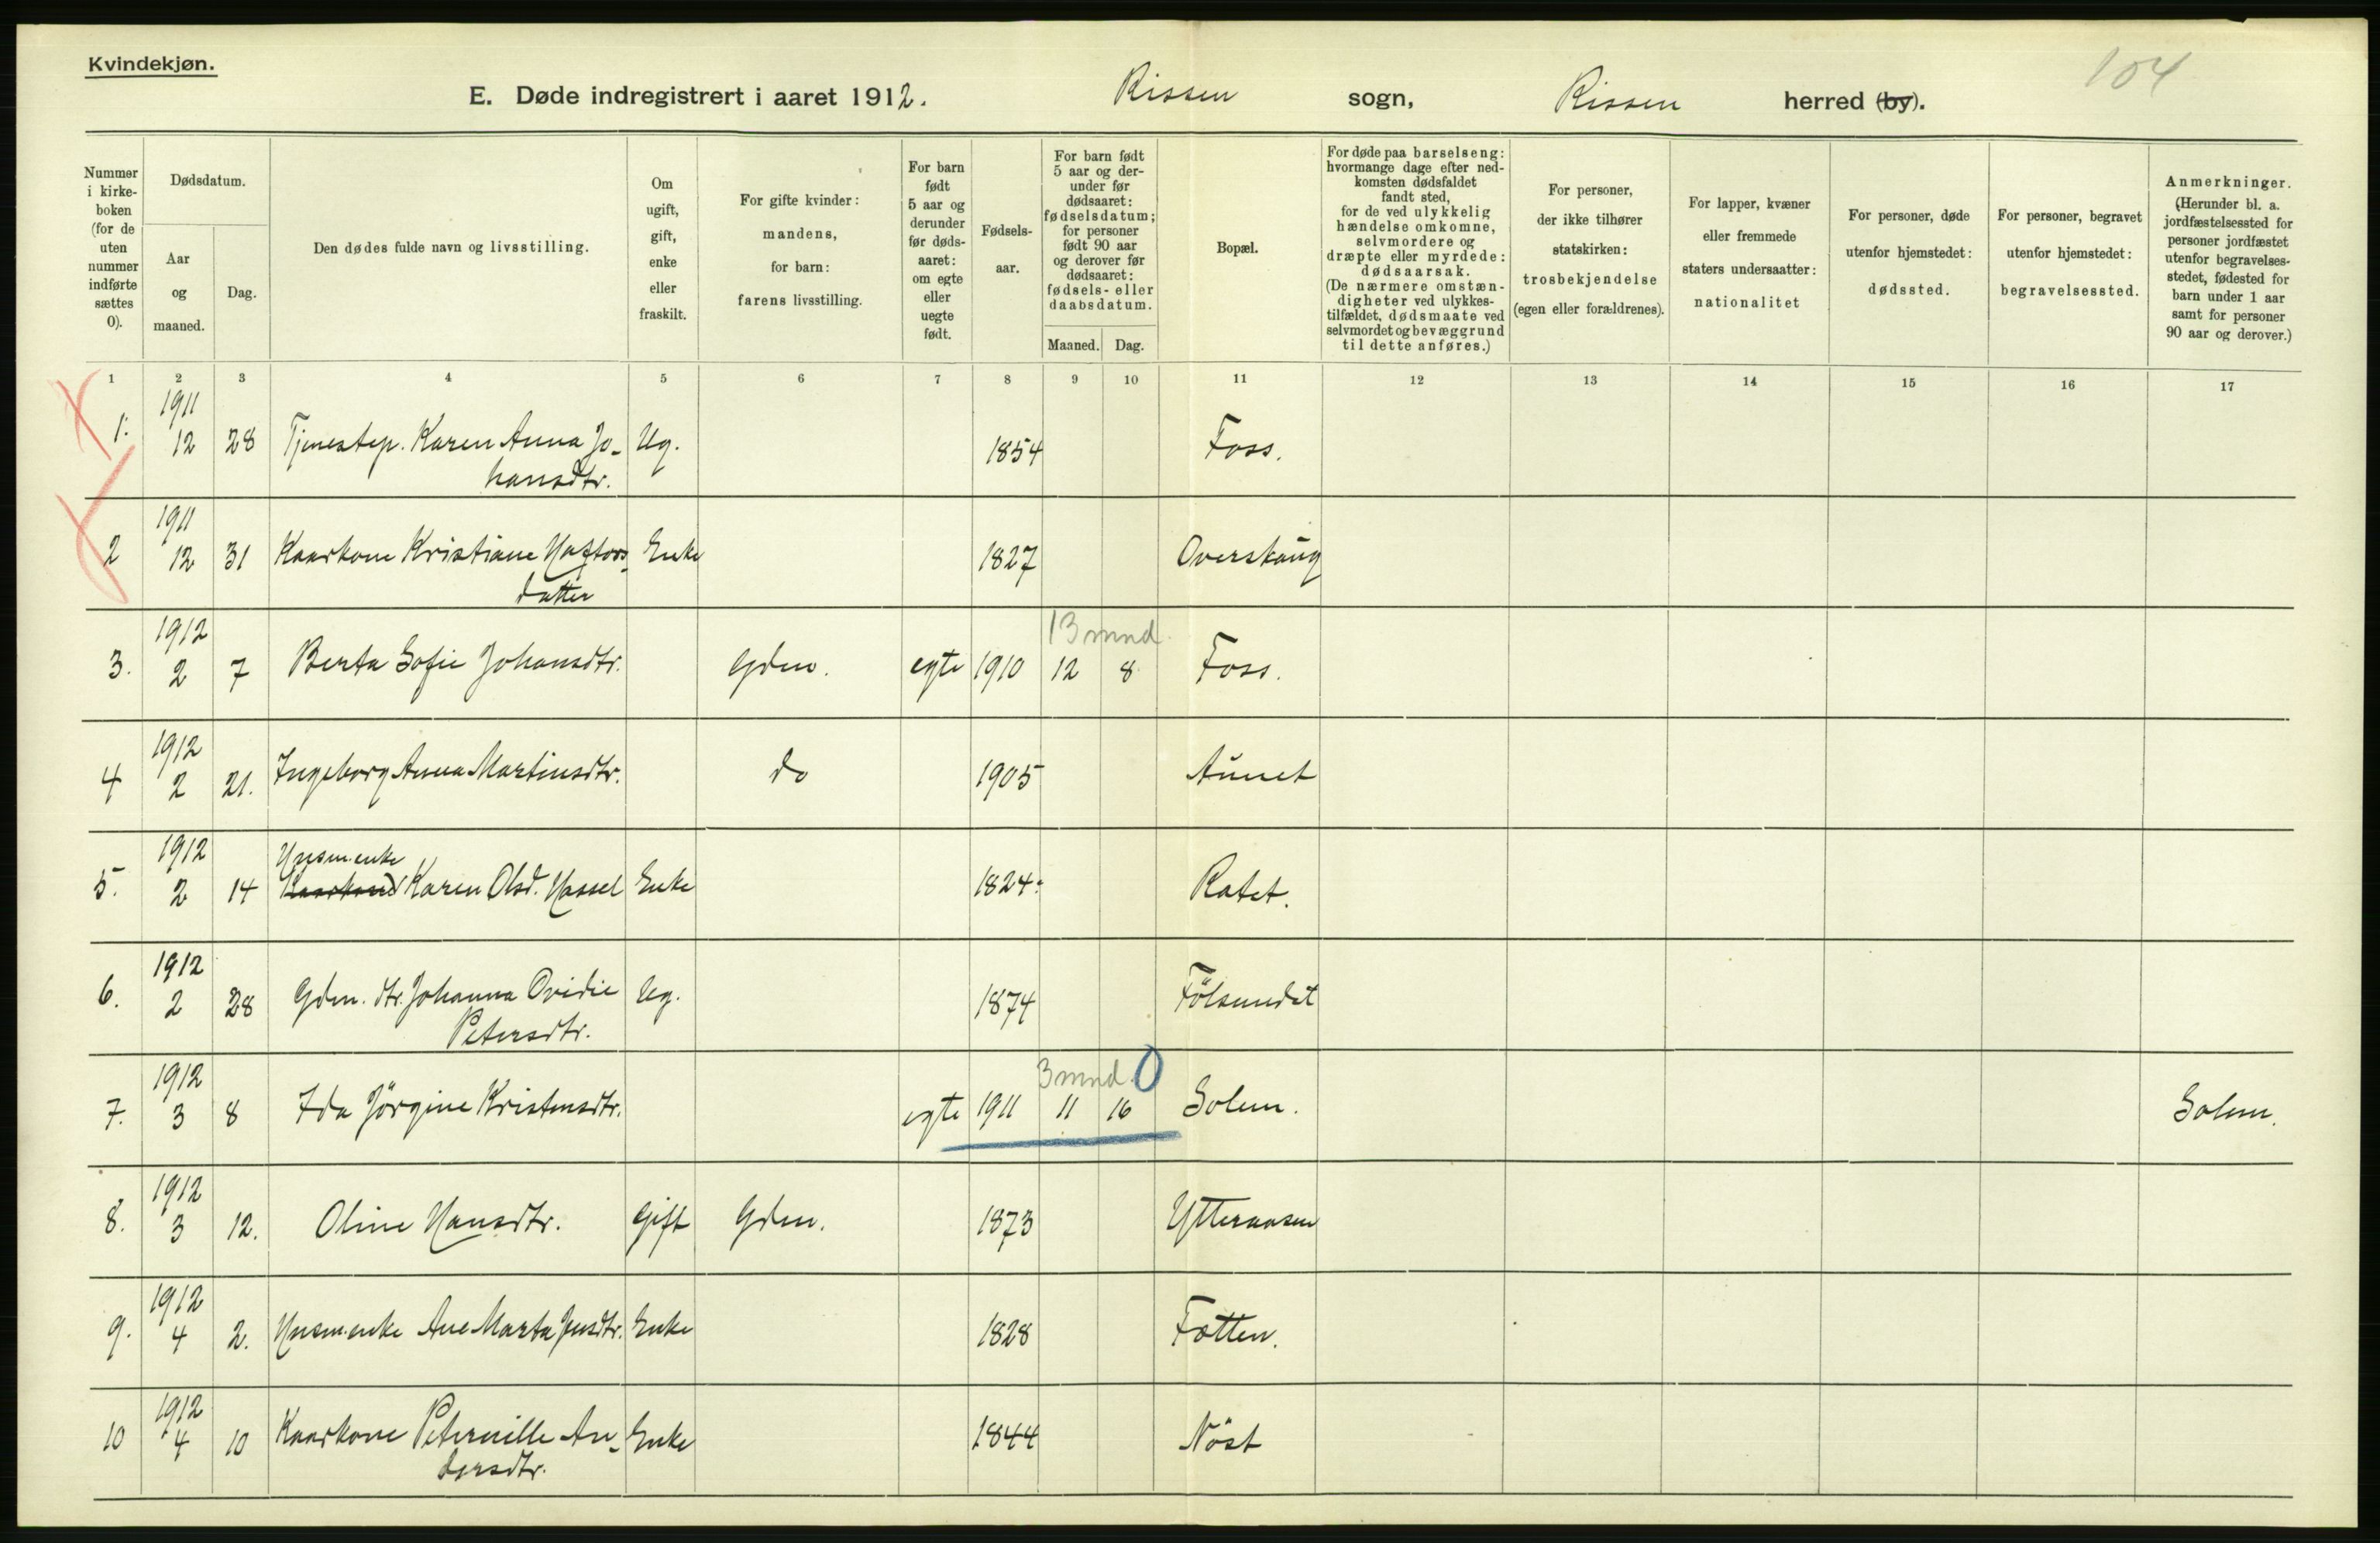 Kvindekjøn.
104
E. Døde indregistrert i aaret 1912. Rissen sogn, Rissen herred (by).
Nummer i kirke- boken (for de uten nummer indførte sættes 0).
Dødsdatum.
Aar og maaned.
Dag.
Den dødes fulde navn og livsstilling.
Om ugift, gift, enke eller fraskilt.
For gifte kvinder: mandens, for barn: farens livsstilling.
For barn født 5 aar og derunder før døds- aaret: om egte eller uegte født.
Fødsels- aar.
For barn født 5 aar og der- under før dødsaaret: fødselsdatum; for personer født 90 aar og derover før dødsaaret: fødsels- eller daabsdatum.
Maaned. Dag.
Bopæl.
For døde paa barselseng: hvormange dage efter ned- komsten dødsfaldet fandt sted, for de ved ulykkelig hændelse omkomne, selvmordere og dræpte eller myrdede: dødsaarsak. (De nærmere omstæn- digheter ved ulykkes- tilfældet, dødsmaate ved selvmordet og bevæggrund til dette anføres.)
For personer, der ikke tilhører statskirken: trosbekjendelse (egen eller forældrenes).
For lapper, kvæner eller fremmede staters undersaatter: nationalitet
For personer, døde utenfor hjemstedet: dødssted.
For personer, begravet utenfor hjemstedet: begravelsessted.
Anmerkninger. (Herunder bl. a. jordfæstelsessted for personer jordfæstet utenfor begravelses- stedet, fødested for barn under 1 aar samt for personer 90 aar og derover.)
1 2 3 4 5 6 7 8 9 10 11 12 13 14 15 16 17
1911
1. 12 28 Tjenestep. Karen Anna Jo- Ug. 1854 Foss.
hansdtr.
1911
2 12 31 Kaarkone Kristiane Haftors- Enke 1827 Overskaug
datter
1912 13 mnd.
3. 2 7 Berta Sofie Johansdtr. Gdm. egte 1910 12 8 Foss.
1912
4 2 21. Ingeborg Anna Martinsdtr. do 1905 Aunet
1912 Husm.enke
5. 2 14 Kaarkone Karen Olsd. Hassel Enke 1824. Ratet.
1912
6. 2 28 Gdm. dtr. Johanna Ovidie Ug. 1874 Fölsundet
Petersdtr.
1912 3 mnd. 0
7. 3 8 Ida Jörgine Kristensdtr. egte 1911 11 16 Solem. Solem.
1912
8. 3 12. Oline Hansdtr. Gift Gdm. 1873 Ytteraasen
1912
9. 4 2. Husm.enke Ane Marta Jensdtr. Enke 1828 Fætten.
1912
10 4 10 Kaarkone Peternille An- Enke 1844 Nöst
dersdtr.